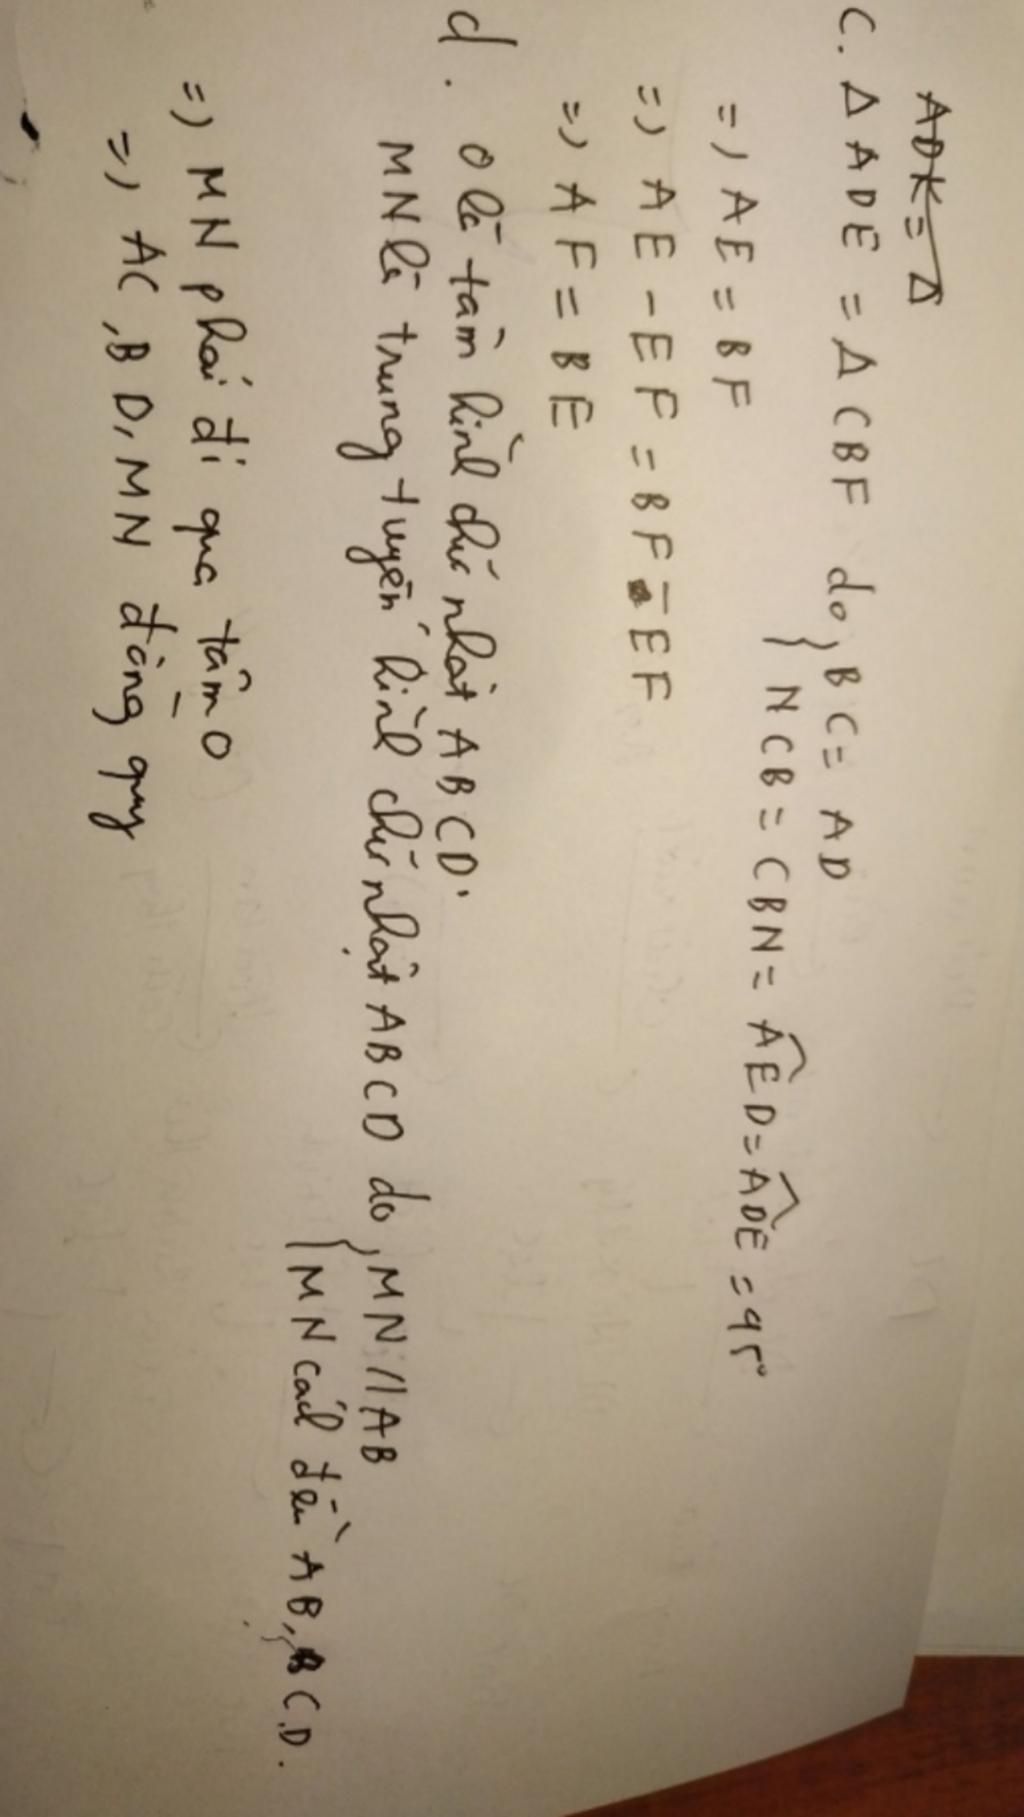 ADK = Δ
c. Δ ADE = Δ CBF do { BC = AD
NCB = CBN = AED = ADE = 45°
=) AE = BF
=) AE - EF = BF - EF
=) AF = BE
d. O là tâm hình chữ nhật ABCD.
MN là trung tuyến hình chữ nhật ABCD do { MN // AB
MN cách đều AB, CD.
=) MN phải đi qua tâm O
=) AC, BD, MN đồng quy